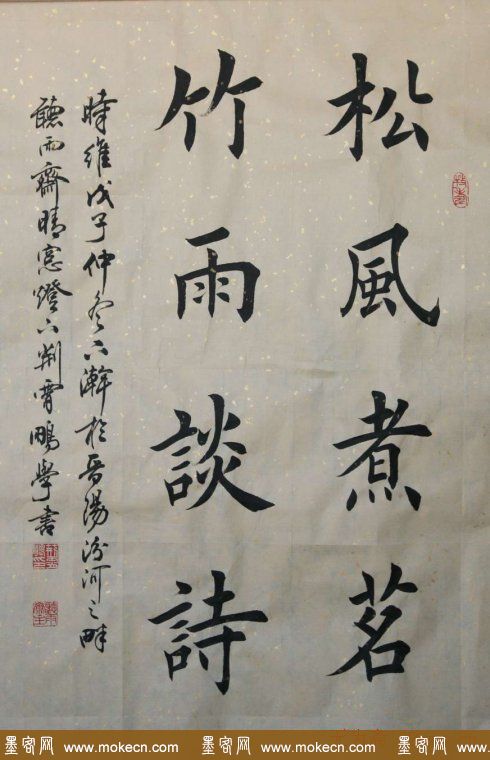 松風煮茗
竹雨談詩
時維戊子仲冬下澣於晉陽汾河之畔
聽雨齋晴窓燈下荊霄鵬學書
墨客网 www.mokecn.com 墨客网 www.mokecn.com 墨客网 www.mokecn.com